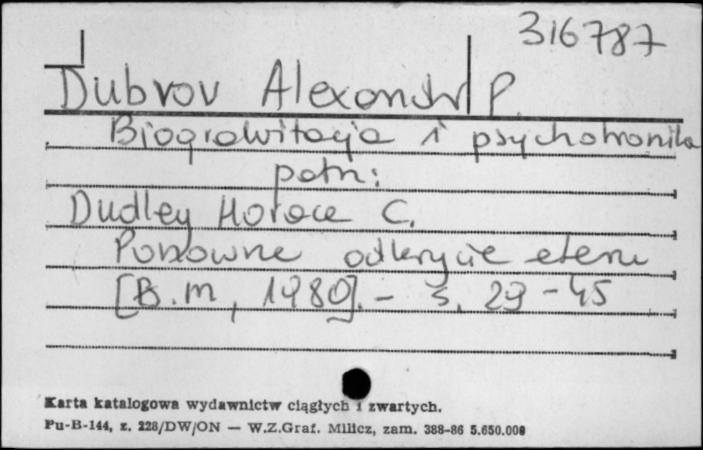 316787
Dubrov Alexandr P.
Biograwitacja i psychotronika
patrz:
Dudley Horace C.
Ponowne odkrycie eteru
[B.m, 1980]. - s. 29-45
Karta katalogowa wydawnictw ciągłych i zwartych.
Pu-B-144, z. 228/DW/ON — W.Z.Graf. Milicz, zam. 388-86 5.650.000